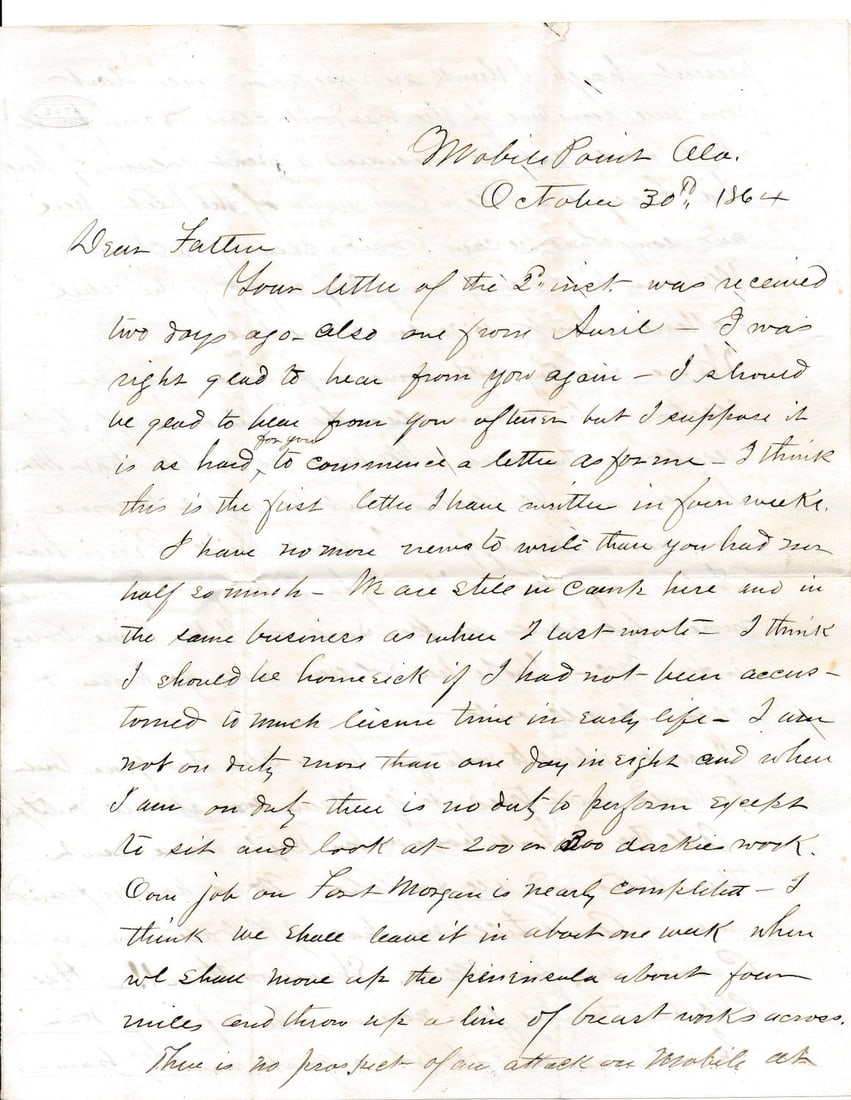 Mobile Point Ala.
October 30th 1864
Dear Father
Your letter of the 2" inst. was received
two days ago - also one from Auril - I was
right glad to hear from you again - I should
be glad to hear from you oftener but I suppose it
is as hard for you to commence a letter as for me - I think
this is the first letter I have written in four weeks.
I have no more news to write than you had nor
half so much - We are still in camp here and in
the same business as when I last wrote - I think
I should be homesick if I had not been accus-
tomed to much leisure time in early life - I am
not on duty more than one day in eight and when
I am on duty there is no duty to perform except
to sit and look at 200 or 300 darkies work.
Our job on Fort Morgan is nearly completed - I
think we shall leave it in about one week when
we shall move up the peninsula about four
miles and throw up a line of breast works across.
There is no prospect of an attack on Mobile at